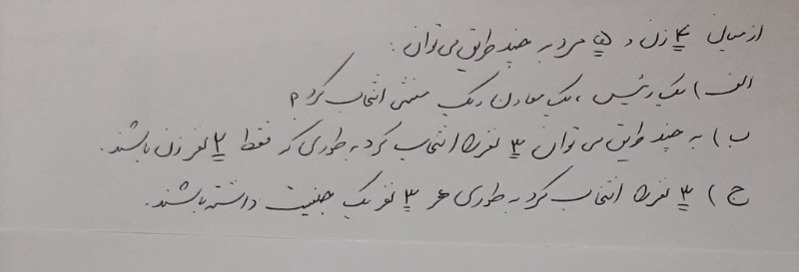 از میان ۴ زن و ۵ مرد به چند طریق می توان :
الف) یک رئیس ، یک معاون و یک منشی انتخاب کرد؟
ب) به چند طریق می توان ۳ نفر را انتخاب کرد به طوری که فقط ۲ نفر زن باشند.
ج) ۳ نفر را انتخاب کرد به طوری هر ۳ نفر یک جنسیت داشته باشند.